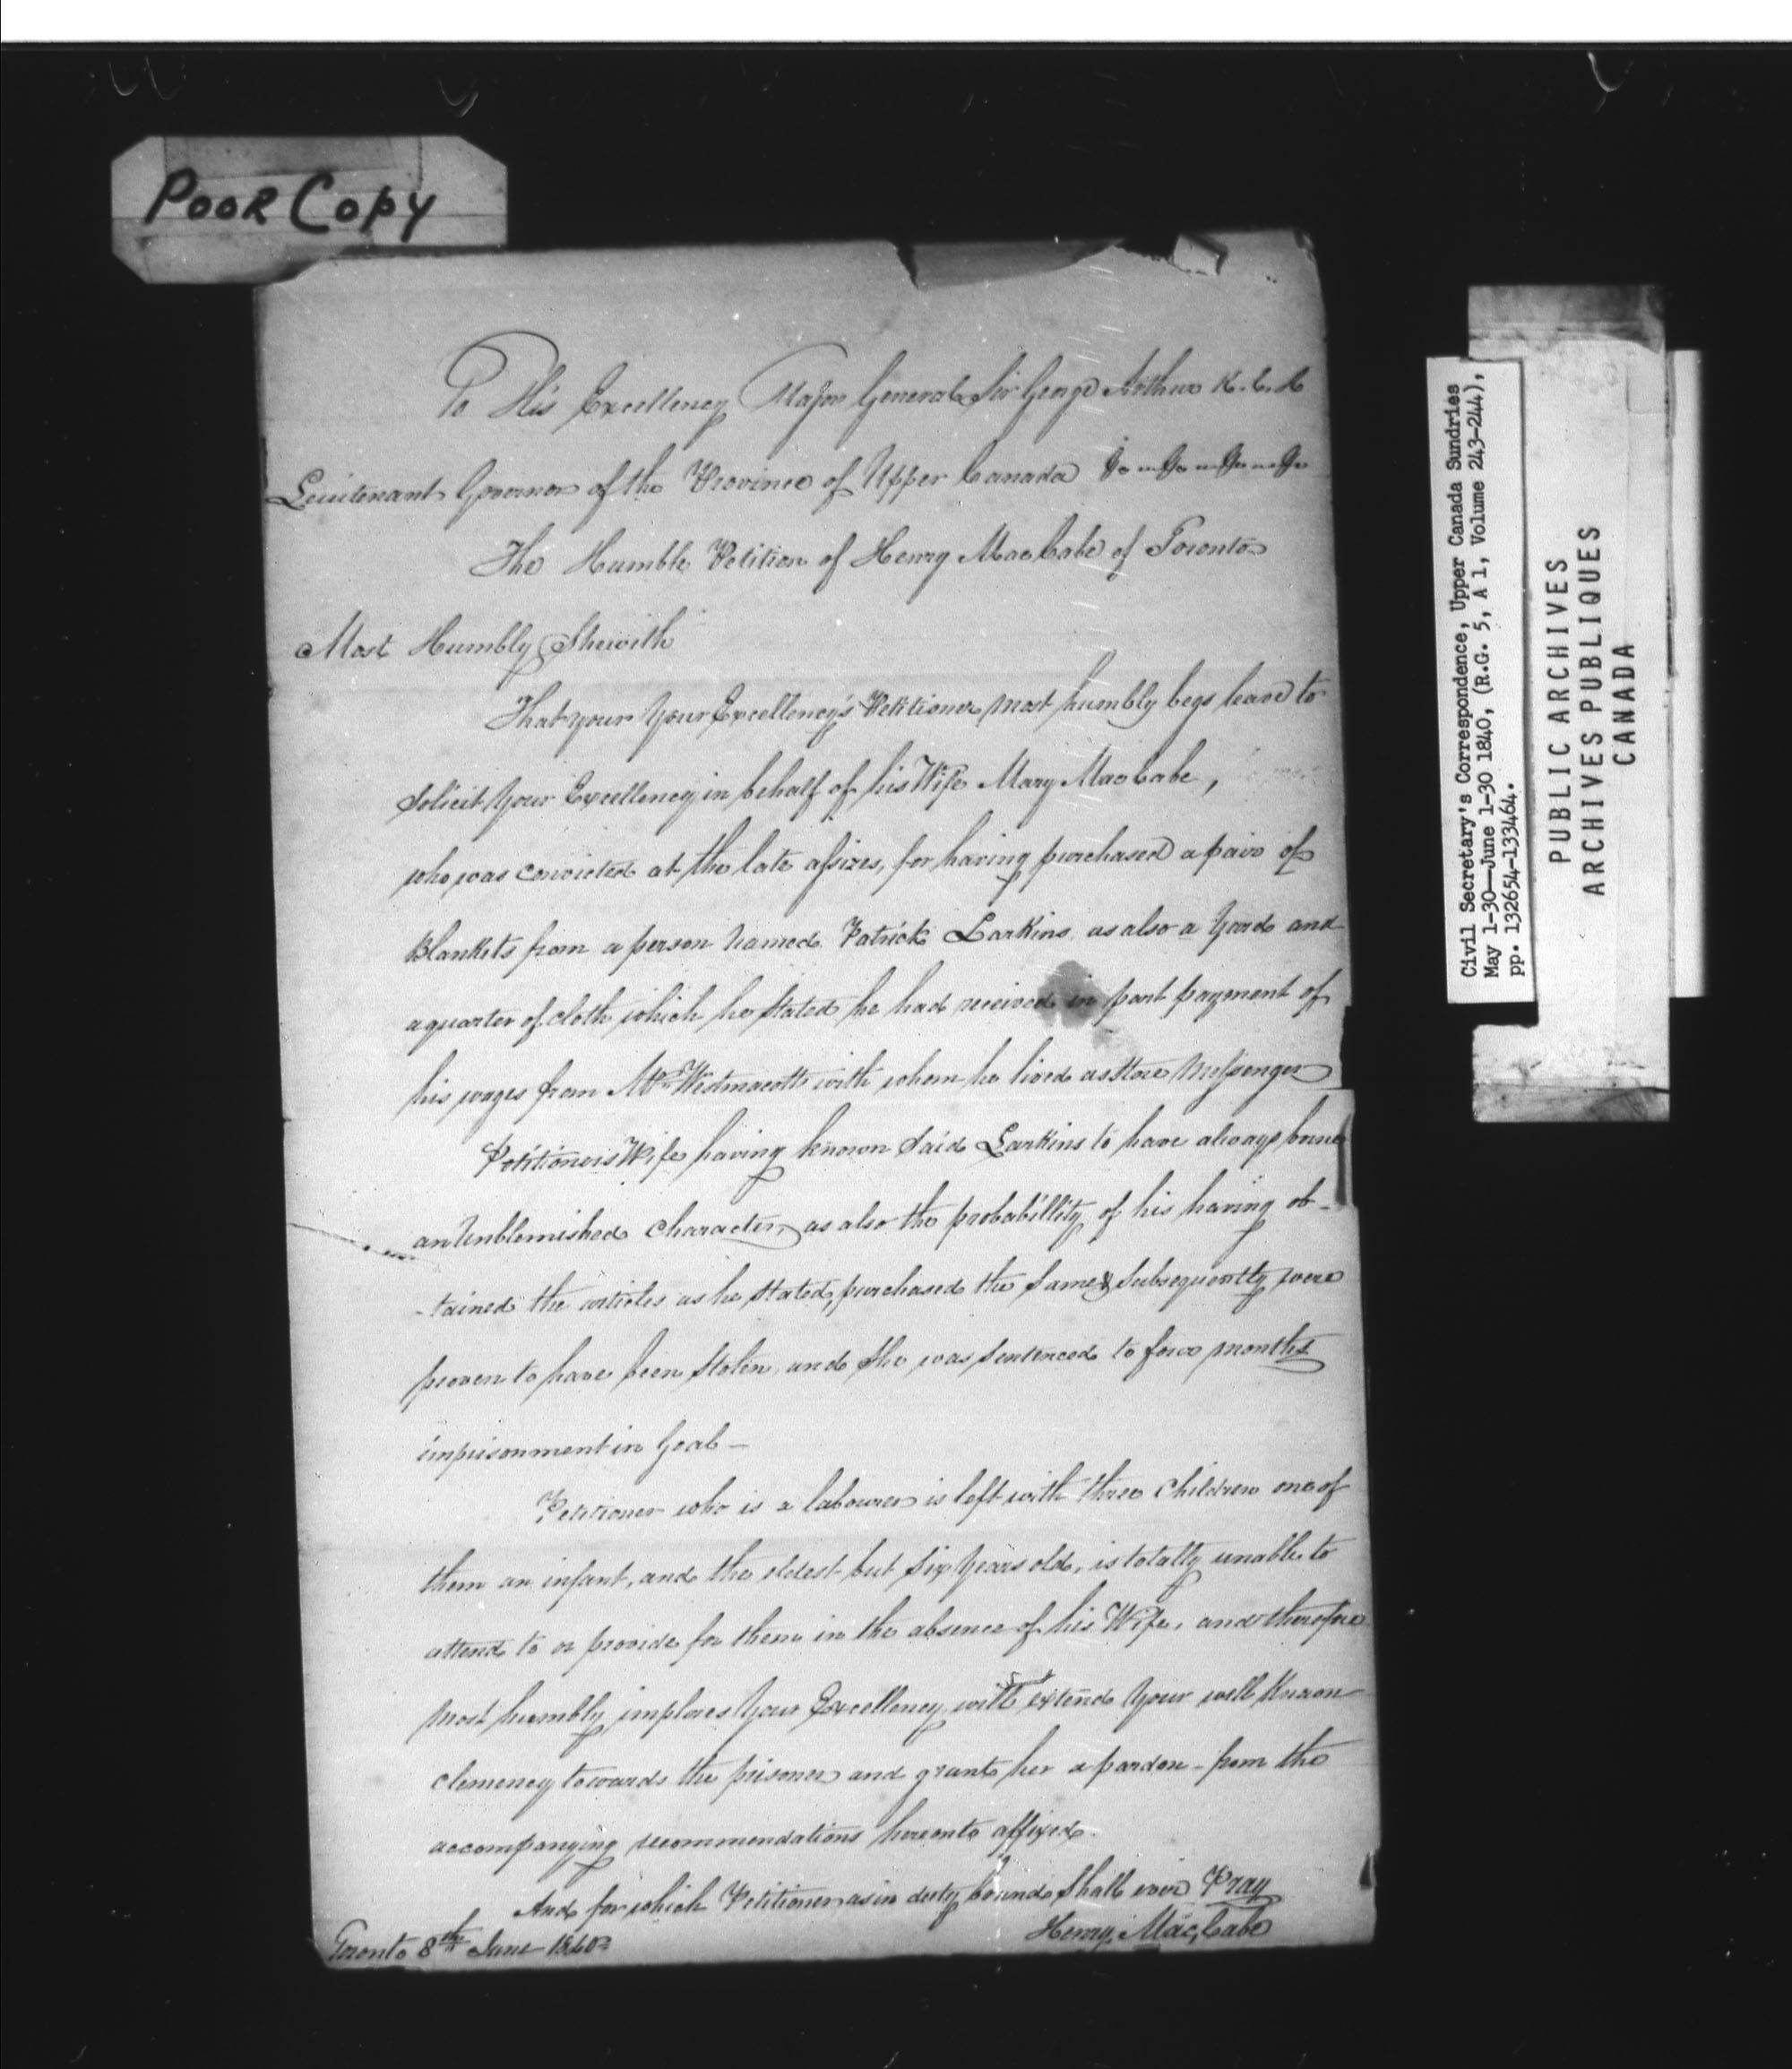 POOR COPY
To His Excellency Major General Sir George Arthur K.C.H
Lieutenant Governor of the Province of Upper Canada &c &c &c &c
The Humble Petition of Henry MacCabe of Toronto
Most Humbly Shewith
That your Your Excellency's Petitioner most humbly begs leave to
solicit Your Excellency in behalf of his Wife Mary MacCabe,
who was convicted at the late assizes, for having purchased a pair of
Blankets from a person named Patrick Larkins as also a Yard and
a quarter of cloth which he stated he had received in part payment of
his wages from Mr Westmacott with whom he lived as Store Messenger
Petitioners Wife having known said Larkins to have always borne
an Unblemished Character, as also the probabillity of his having ob-
-tained the articles as he stated, purchased the same & subsequently were
proven to have been stolen and she was sentenced to four months
imprisonment in Goal –
Petitioner who is a labourer is left with three children one of
them an infant, and the eldest but six Years old, is totally unable to
attend to or provide for them in the absence of his Wife, and therefore
most humbly implores Your Excellency will extend Your well Known
clemency towards the prisoner and grant her a pardon – from the
accompanying recommendations hereonto affixed.
And for which Petitioner as in duty bound shall ever Pray
Henry MacCabe
Toronto 8th June 1840
Civil Secretary's Correspondence, Upper Canada Sundries
May 1-30—June 1-30 1840, (R.G. 5, A 1, Volume 243-244),
pp. 132654-133464.
PUBLIC ARCHIVES
ARCHIVES PUBLIQUES
CANADA